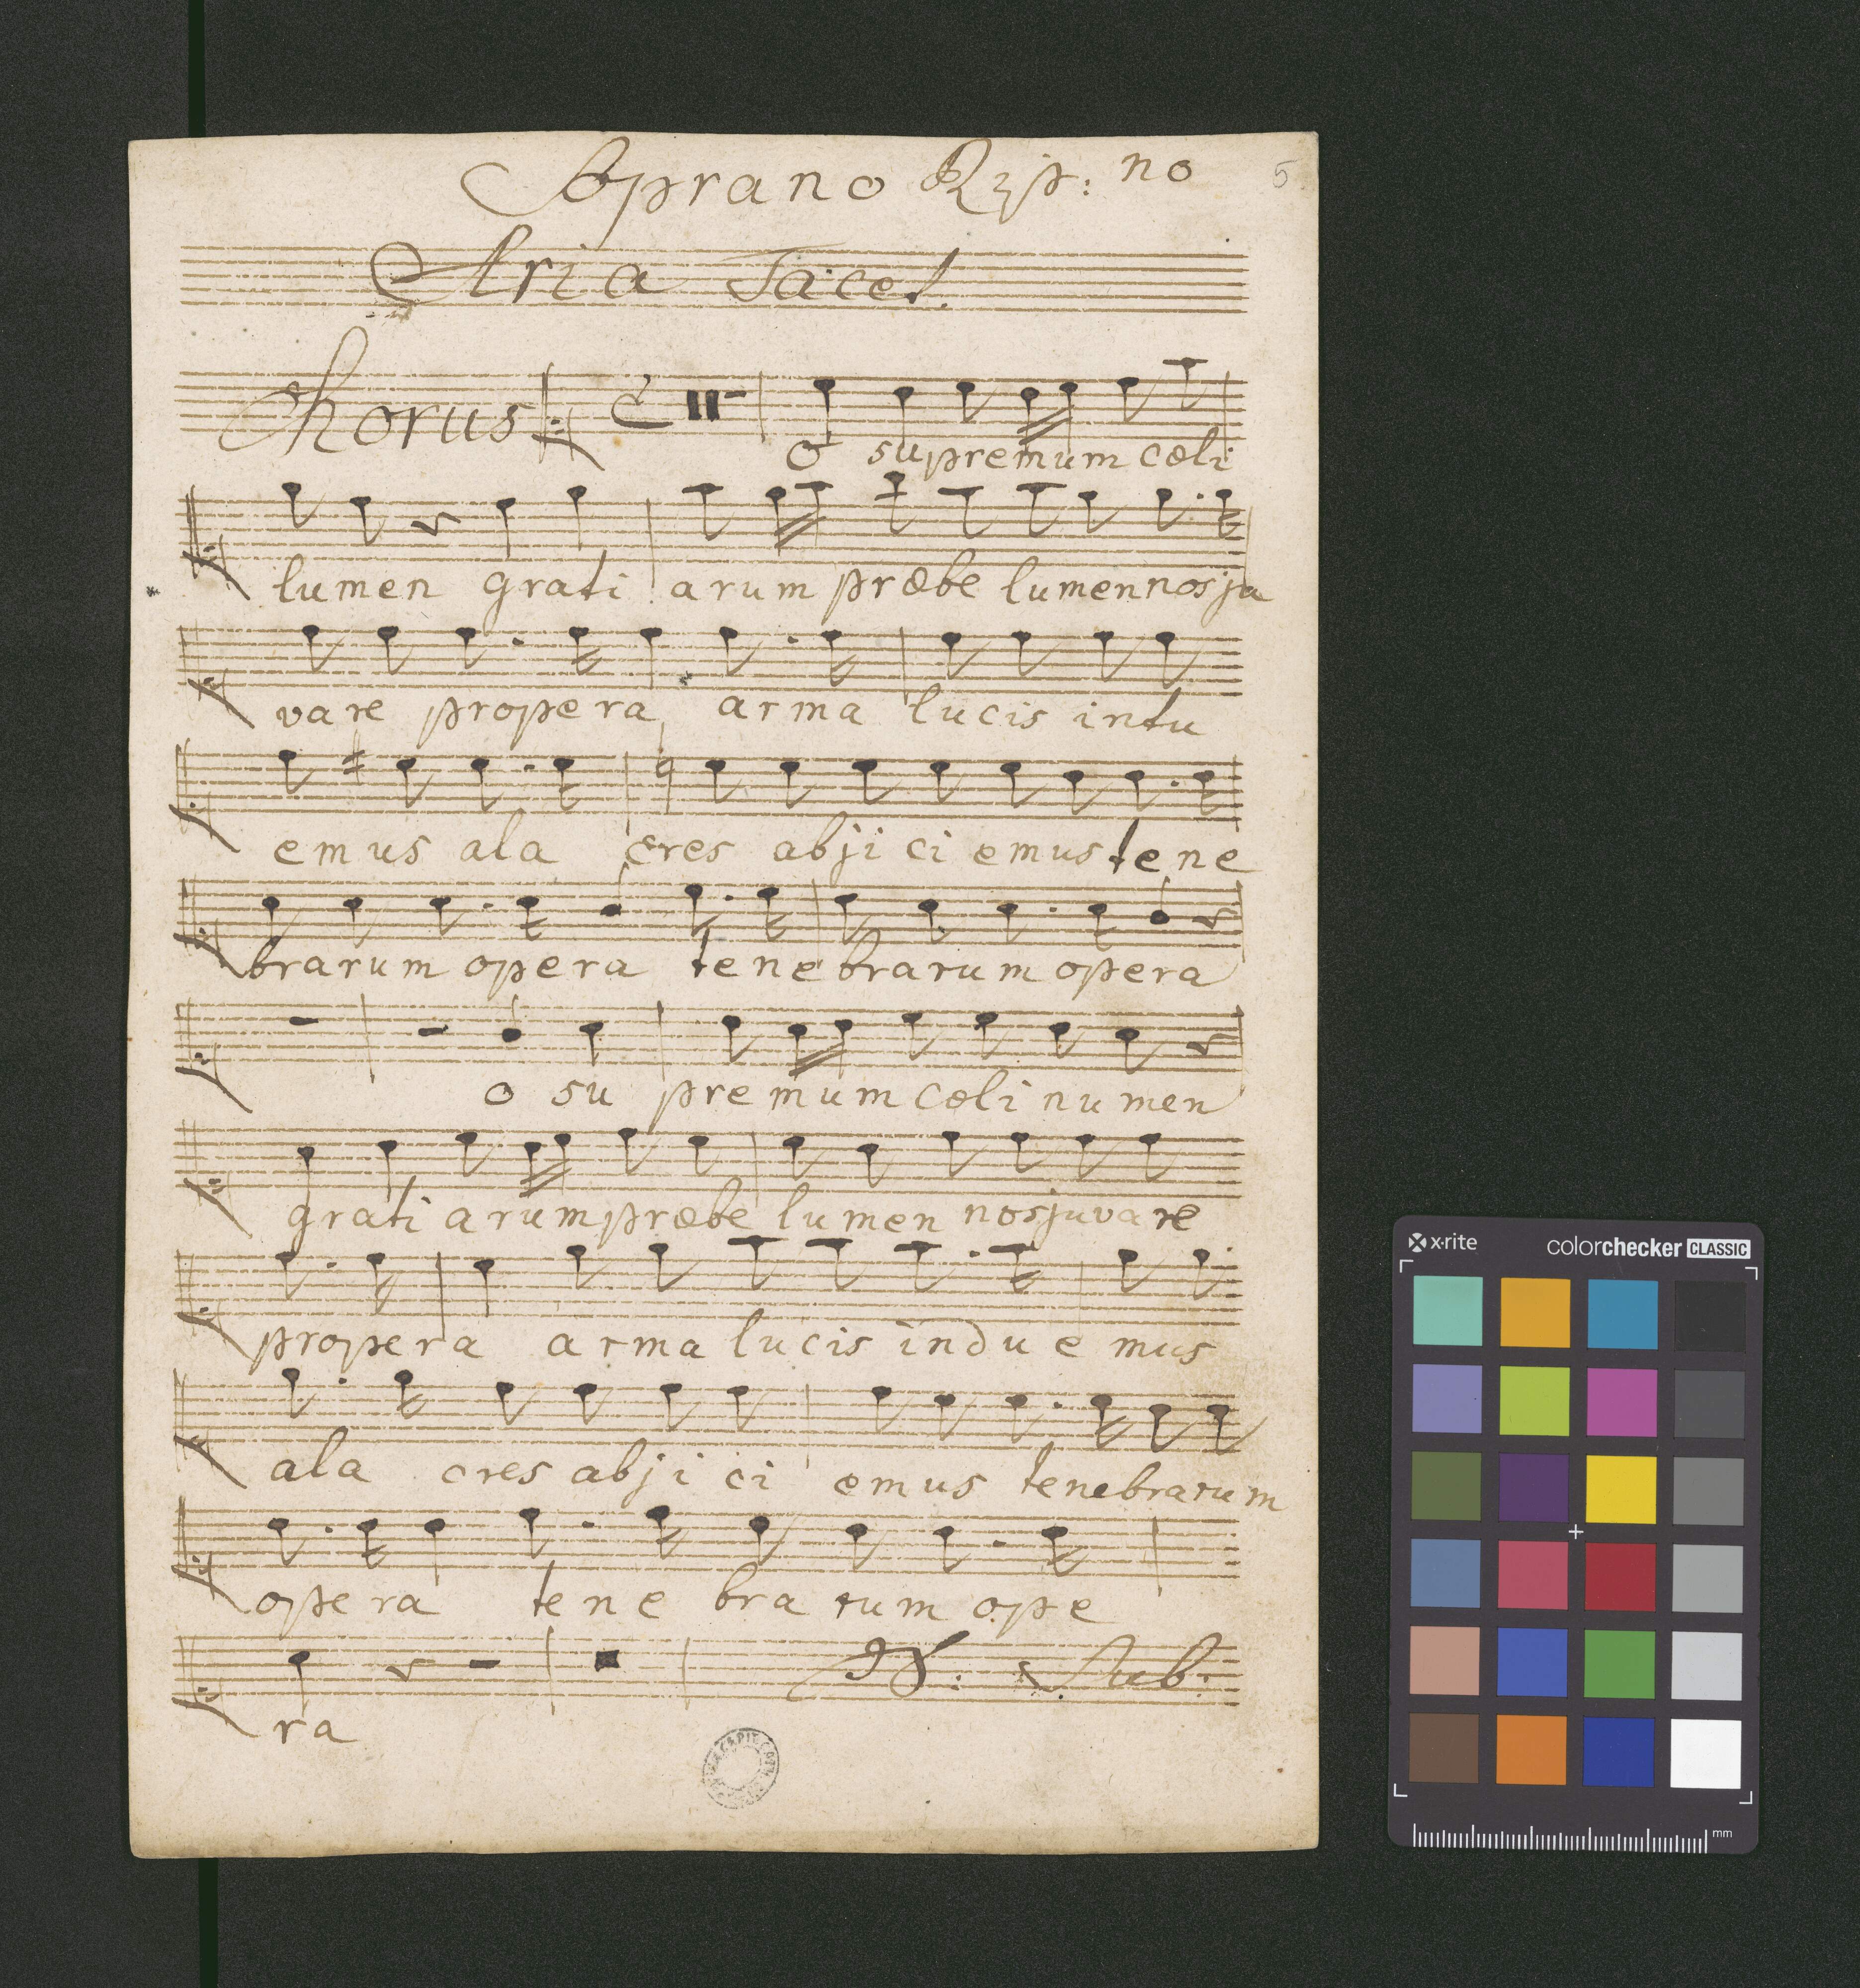 Soprano Rip: no
5
Aria Tacet.
Chorus
O supremum cœli
lumen grati arum præbe lumen nos ju
vare propera arma lucis intu
emus ala cres abji ci emus tene
brarum opera tene brarum opera
o su premum cœli numen
grati arum præbe lumen nos juvare
propera arma lucis indu e mus
ala cres abji ci emus tenebrarum
opera tene bra rum ope
ra
x-rite
colorchecker CLASSIC
mm